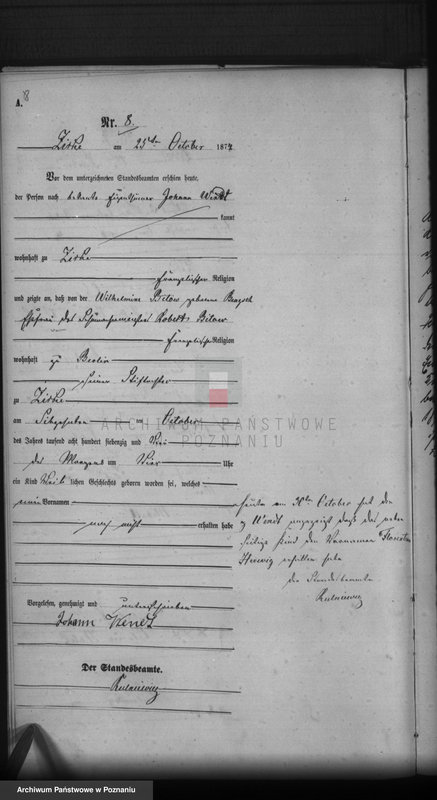 A.
8
Nr. 8.
Zirke am 25ten October 1874
Vor dem unterzeichneten Standesbeamten erschien heute,
der Person nach bekannte Eigenthümer Johann Wendt
kannt
wohnhaft zu Zirke
Evangelischer Religion
und zeigte an, daß von der Wilhelmine Bitow geborene
Ehefrau des Robert Bitow
Evangelischer Religion
wohnhaft zu Berlin
seiner Stieftochter
zu Zirke
am October
des Jahres tausend acht hundert siebenzig und Vier
des Morgens um Vier Uhr
ein Kind lichen Geschlechts geboren worden sei, welches
einen Vornamen
noch nicht erhalten habe
October hat der
Wendt angezeigt daß das neben
Kind den Vornamen
Hedwig erhalten habe
der Standesbeamte
Vorgelesen, genehmigt und unterschrieben
Johann Wendt
Der Standesbeamte.
ARCHIWUM PAŃSTWOWE
POZNANIU
Archiwum Państwowe w Poznaniu